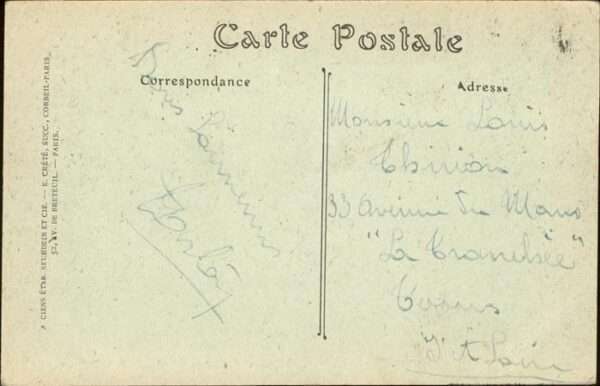 Carte Postale
Correspondance
Adresse
Monsieur Louis
Thirion
33 Avenue du Mans
"La Tranchée"
Tours
I et Loire
Bons Souvenirs
Aciens Étab. Neurdein et Cie. — E. Crété, Succ., Corbeil-Paris.
52, Av. de Breteuil. — Paris.